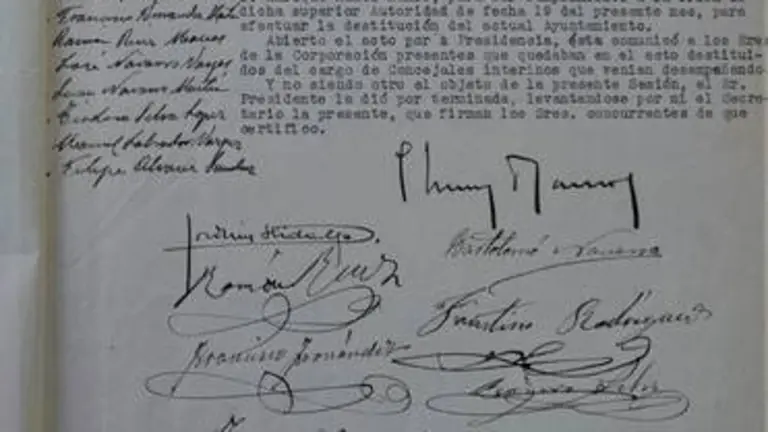 Francisco Fernandez
dicha superior Autoridad de fecha 19 del presente mes, para
Ramón Ruiz
efectuar la destitución del actual Ayuntamiento.
José Navarro Vargas
Abierto el acto por a Presidencia, ésta comunicó a los Sres
de la Corporación presentes que quedaban en el acto destitui-
Juan Navarro Martin
dos del cargo de Concejales interinos que venian desempeñando
Teodoro Silva Lopez
Y no siendo otro el objeto de la presente Sesión, el Sr.
Presidente la dió por terminada, levantandose por mi el Secre-
Manuel Salvador Vargas
tario la presente, que firman los Sres. concurrentes de que
certifico.
Felipe Alvarez
Joaquin Hidalgo.
Bartolomé Navarro
Ramón Ruiz
Faustino Rodríguez
Francisco Fernández